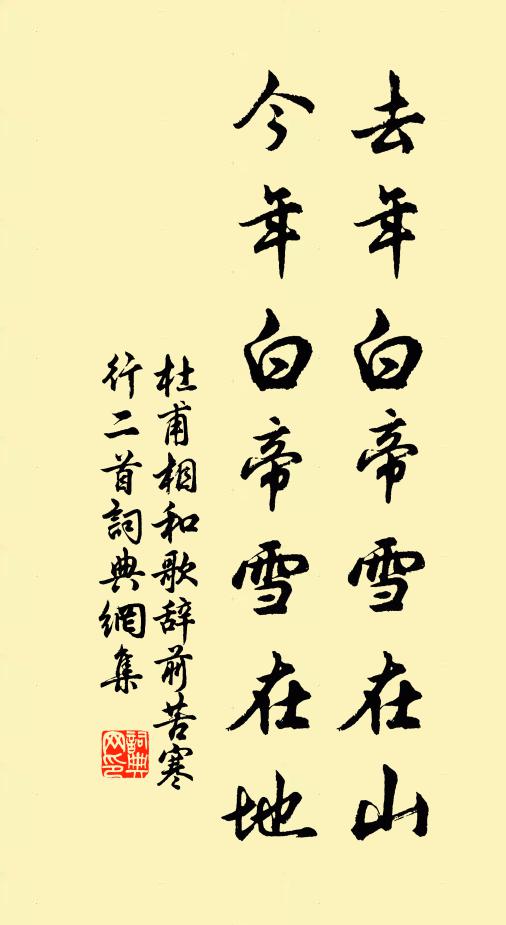 去年白帝雪在山
今年白帝雪在地
杜甫相和歌辞前苦寒
行二首詞典網集
詞典
网印